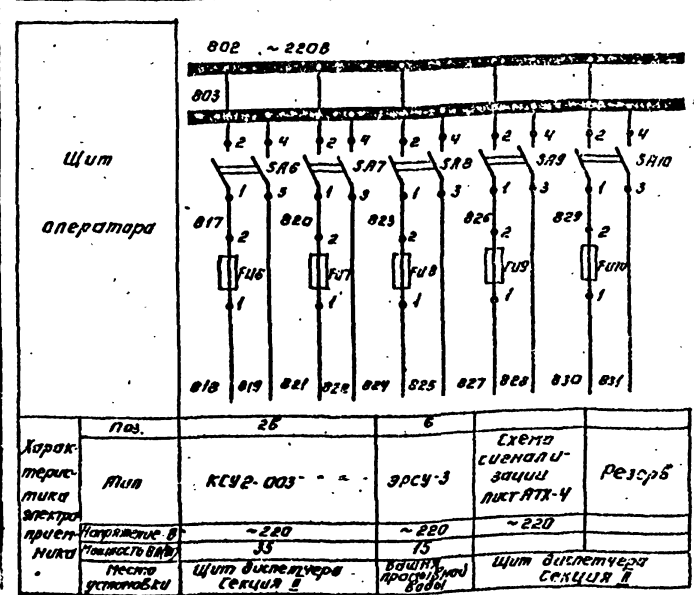 802 ~ 220В
803
2 4 2 4 2 4 2 4 2 4
Щит
оператора
SA6 SA7 SA8 SA9 SA10
1 3 1 3 1 3 1 3 1 3
817 820 823 826 829
2 2 2 2 2
FU6 FU7 FU8 FU9 FU10
1 1 1 1 1
818 819 821 822 824 825 827 828 830 831
Характеристика электроприемника
Поз. 2б 6
Тип КСУ2-003 - " - ЭРСУ-3 Схема сигнализации лист АТХ-4 Резерв
Напряжение В ~220 ~220 ~220
Мощность ВА(Вт) 35 15
Место установки Щит диспетчера Секция II Башня промывной воды Щит диспетчера Секция II